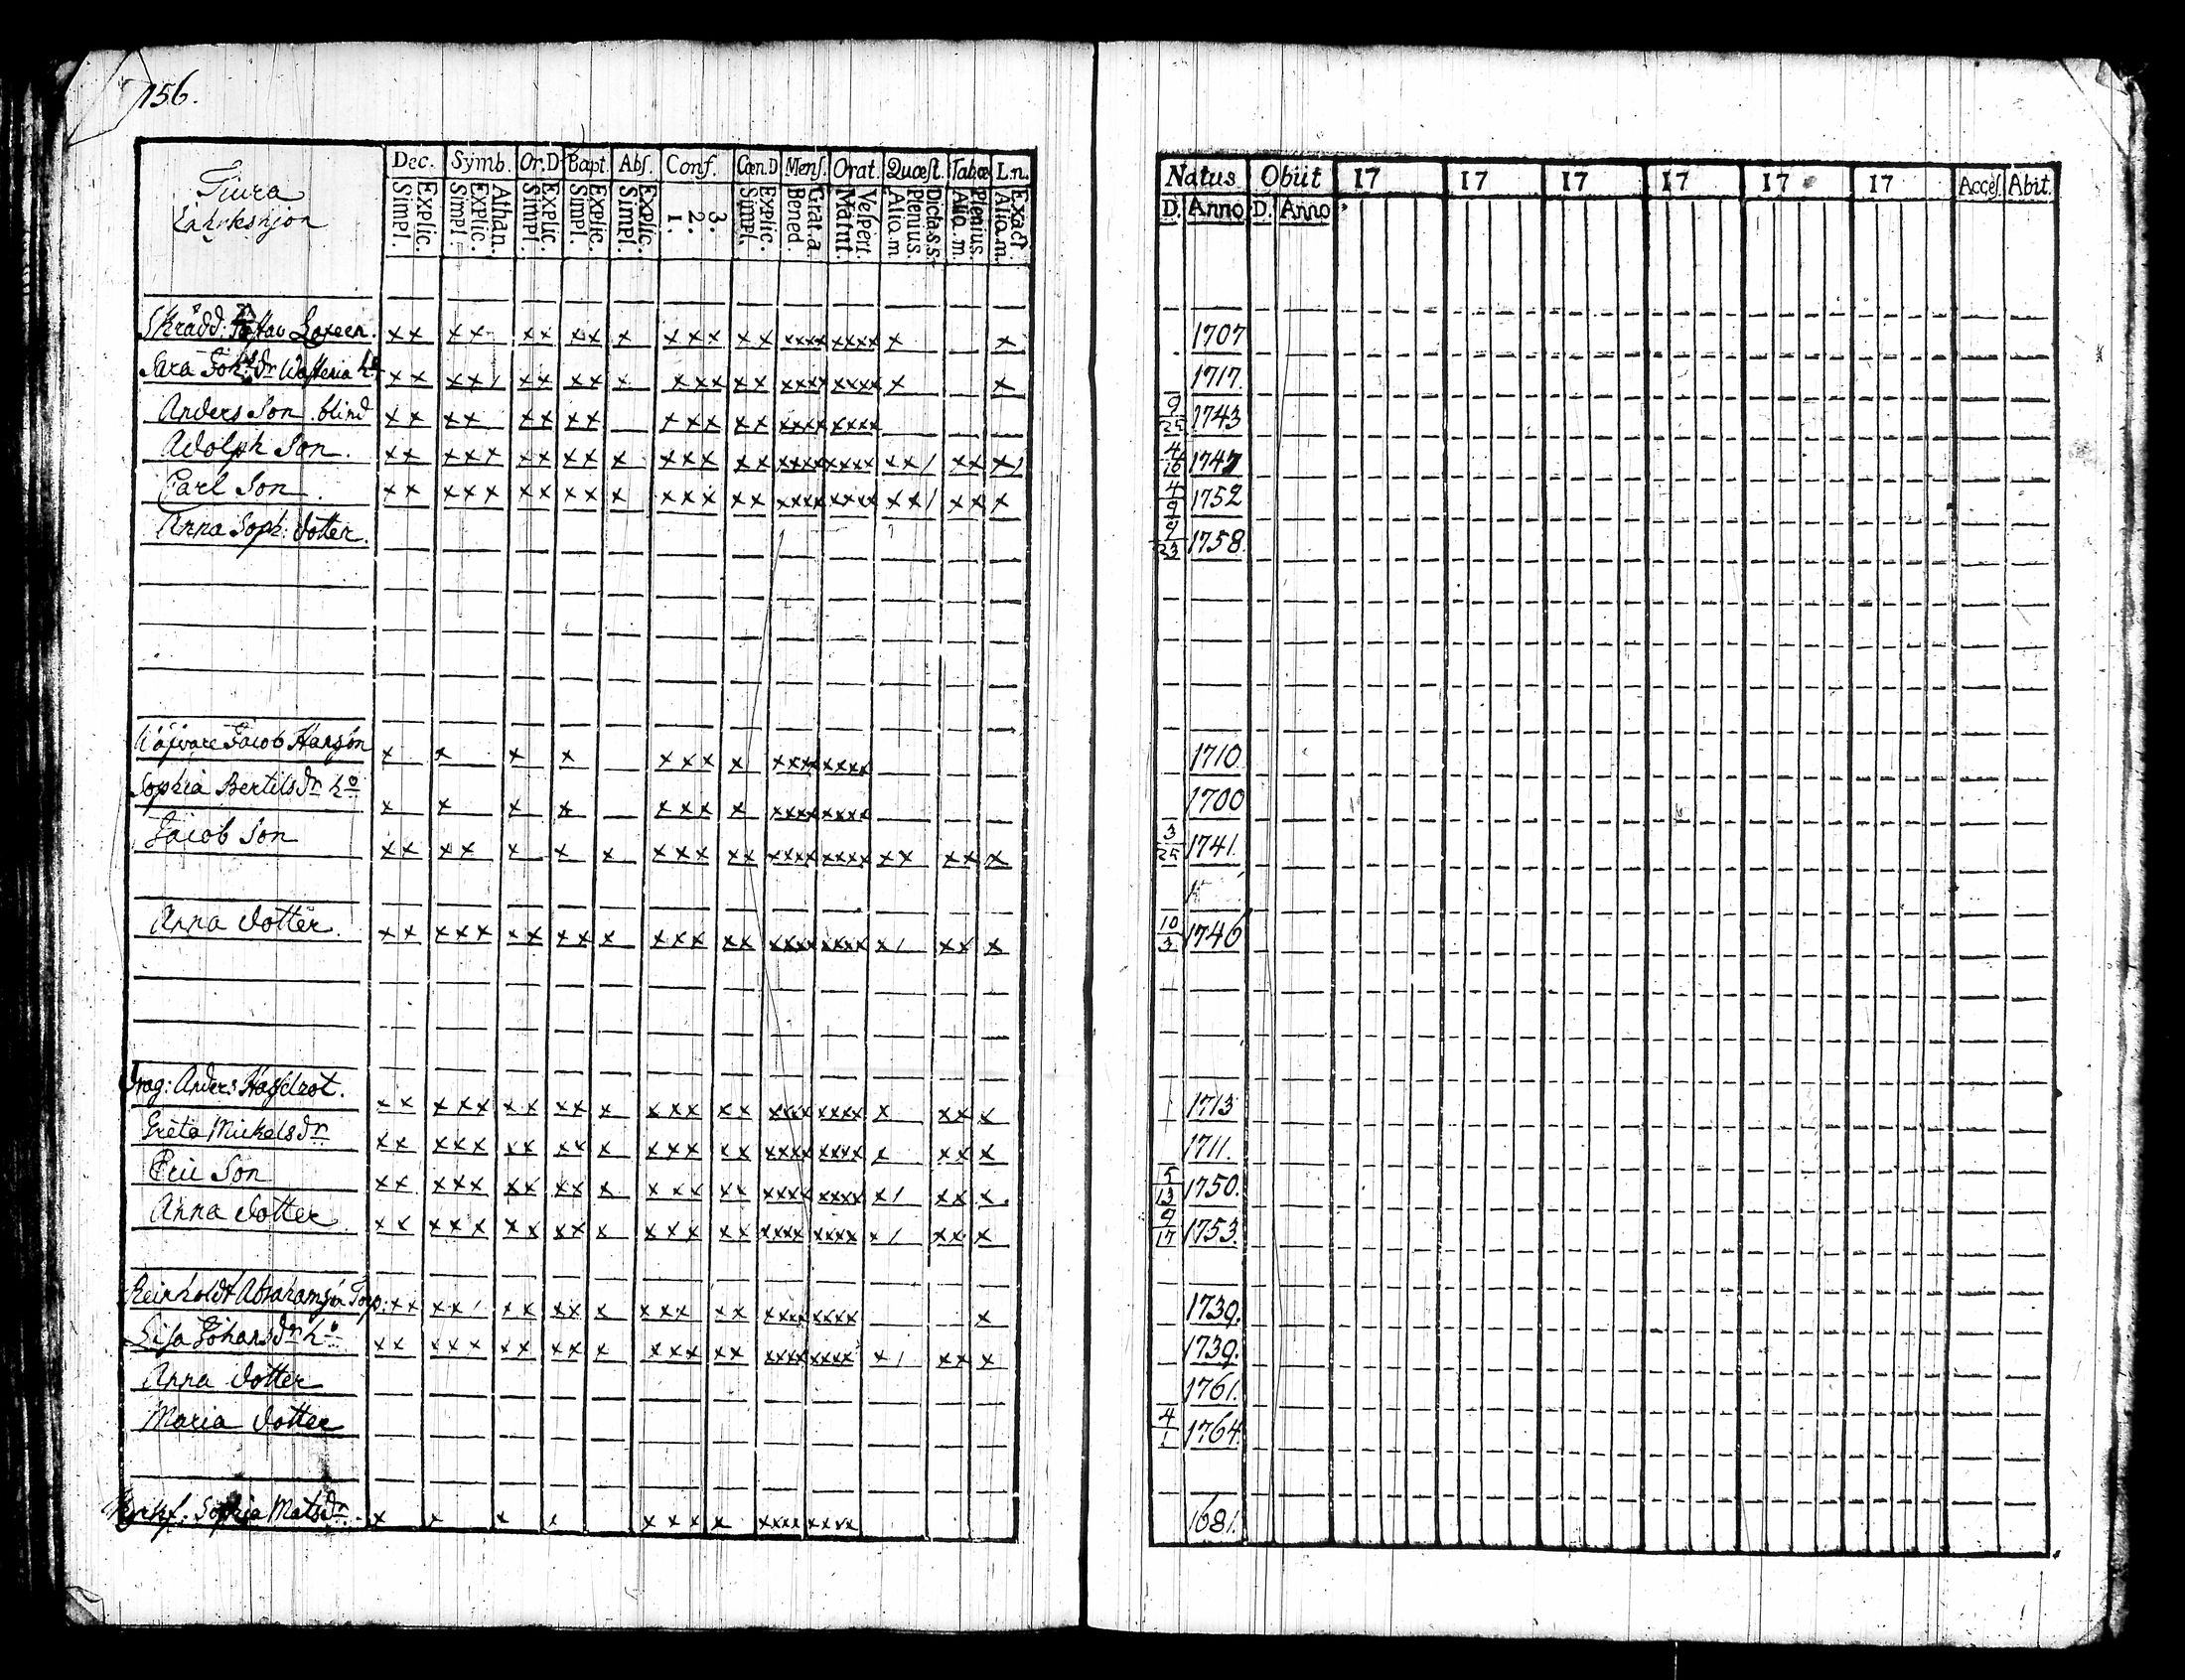 156.
Dec. Symb. Or.D Bapt. Abs. Conf. Cœn.D Mens. Orat. Quæst. Tabœ L.n.
Simpl. Explic. Simpl. Explic. Athan. Simpl. Explic. Simpl. Explic. Simpl. Explic. 1. 2. 3. Simpl. Explic. Bened. Grat. a. Matut. Vespert. Aliq. m. Plenius. Dictas s. Aliq. m. Plenius. Aliq. m. Exact
Natus Obiit 17 17 17 17 17 17 Acces. Abit.
D. Anno D. Anno
Tiura
Skrädd: Loxeen. x x x x x x x x x x x x x x xxxx xxxx x x 1707
Sara Joh:s dr h:o x x x x / x x x x x x x x x x xxxx xxxx x x 1717.
Anders Son blind x x x x x x x x x x x x x xxxx xxxx 9/25 1743
Adolph Son. x x x x x x x x x x x x x x x xxxx xxxx x x / x x x / 4/16 1747
Carl Son. x x x x x x x x x x x x x x x xxxx xxxx x x / x x x 4/9 1752
Anna Soph: dotter. 9/23 1758.
Jacob Hansson x x x x x x x x xxxx xxxx 1710
Sophia Bertils dr h:o x x x x x x x x xxxx xxxx 1700
Jacob Son x x x x x x x x x x x x xxxx xxxx x x x x x 3/25 1741.
Anna dotter. x x x x x x x x x x x x x x x xxxx xxxx x / x x x 10/3 1746
Drag: Anders Hasselrot. x x x x x x x x x x x x x x x xxxx xxxx x x x x 1713
Greta Mickels dr x x x x x x x x x x x x x x x xxxx xxxx x x x x 1711.
Eric Son x x x x x x x x x x x x x x x xxxx xxxx x / x x x 5/13 1750.
Anna dotter x x x x x x x x x x x x x x x xxxx xxxx x / x x x 9/17 1753.
Reinholdt Abrahamsson Torp: x x x x / x x x x x x x x x x xxxx xxxx x 1739.
Lisa Johans dr h:o x x x x x x x x x x x x x x x xxxx xxxx x / x x x 1739.
Anna dotter 1761.
Maria dotter 4/1 1764.
Sophia Mats dr x x x x x x x x xxxx xxxx 1681.